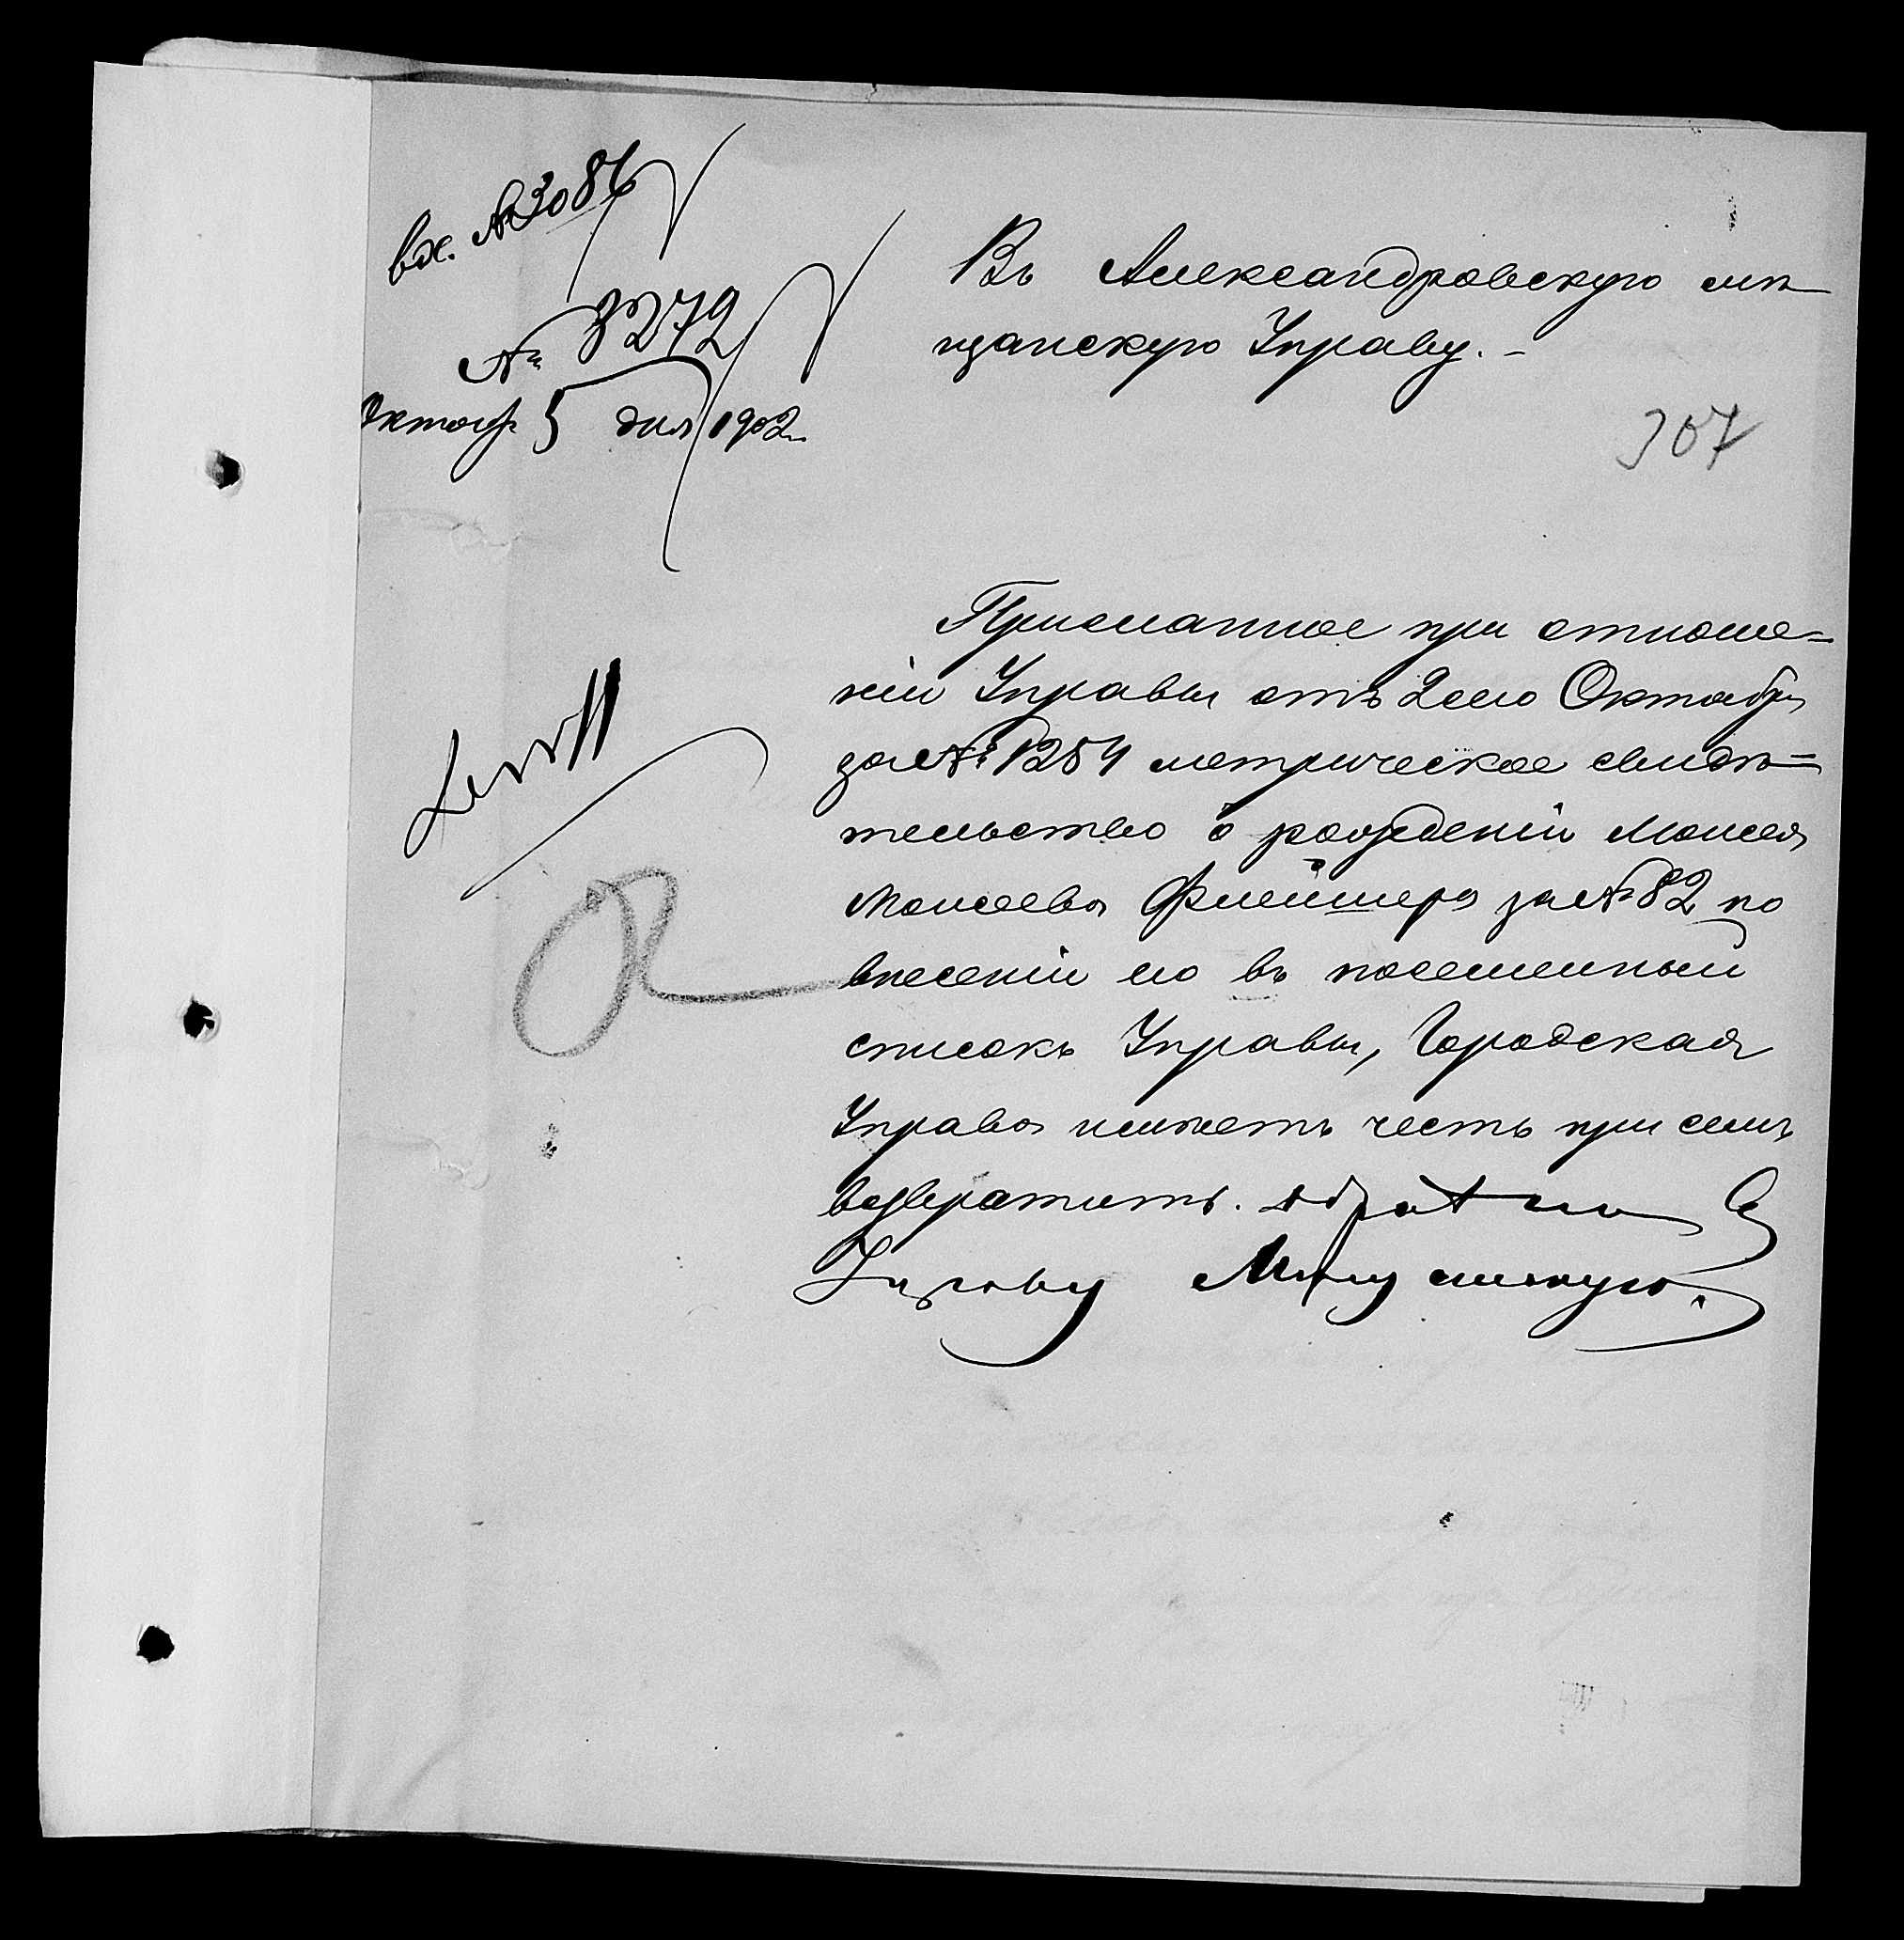 вх. №3086
№ 3272
Октября 5 дня 1902 г.
Въ Александровскую мѣ
щанскую Управу. –
307
Присланное при отноше=
нiи Управы отъ 2сего Октября
за № 1254 метрическое свидѣ=
тельство о рожденiи Моисея
Моисеева Флейшера за № 82 по
внесенiи его въ посемейный
списокъ Управы, Городская
Управа имѣетъ честь при семъ
возвратить. обратно въ
Управу Мѣщанскую.